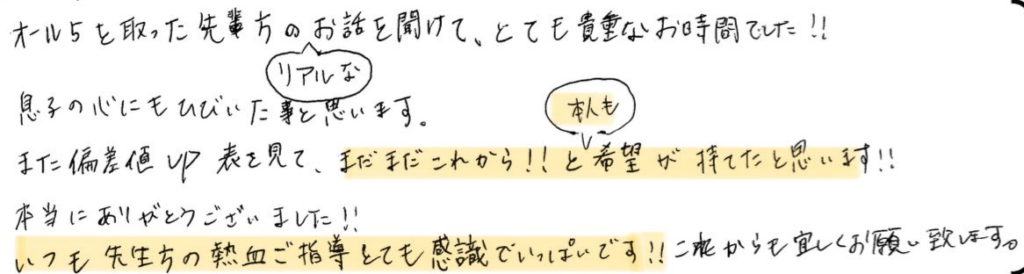 オール5を取った先輩方のリアルなお話を聞けて、とても貴重なお時間でした!!
息子の心にもひびいた事と思います。
また偏差値UP表を見て、まだまだこれから!!と本人も希望が持てたと思います!!
本当にありがとうございました!!
いつも先生方の熱血ご指導とても感識でいっぱいです!!これからも宜しくお願い致します。